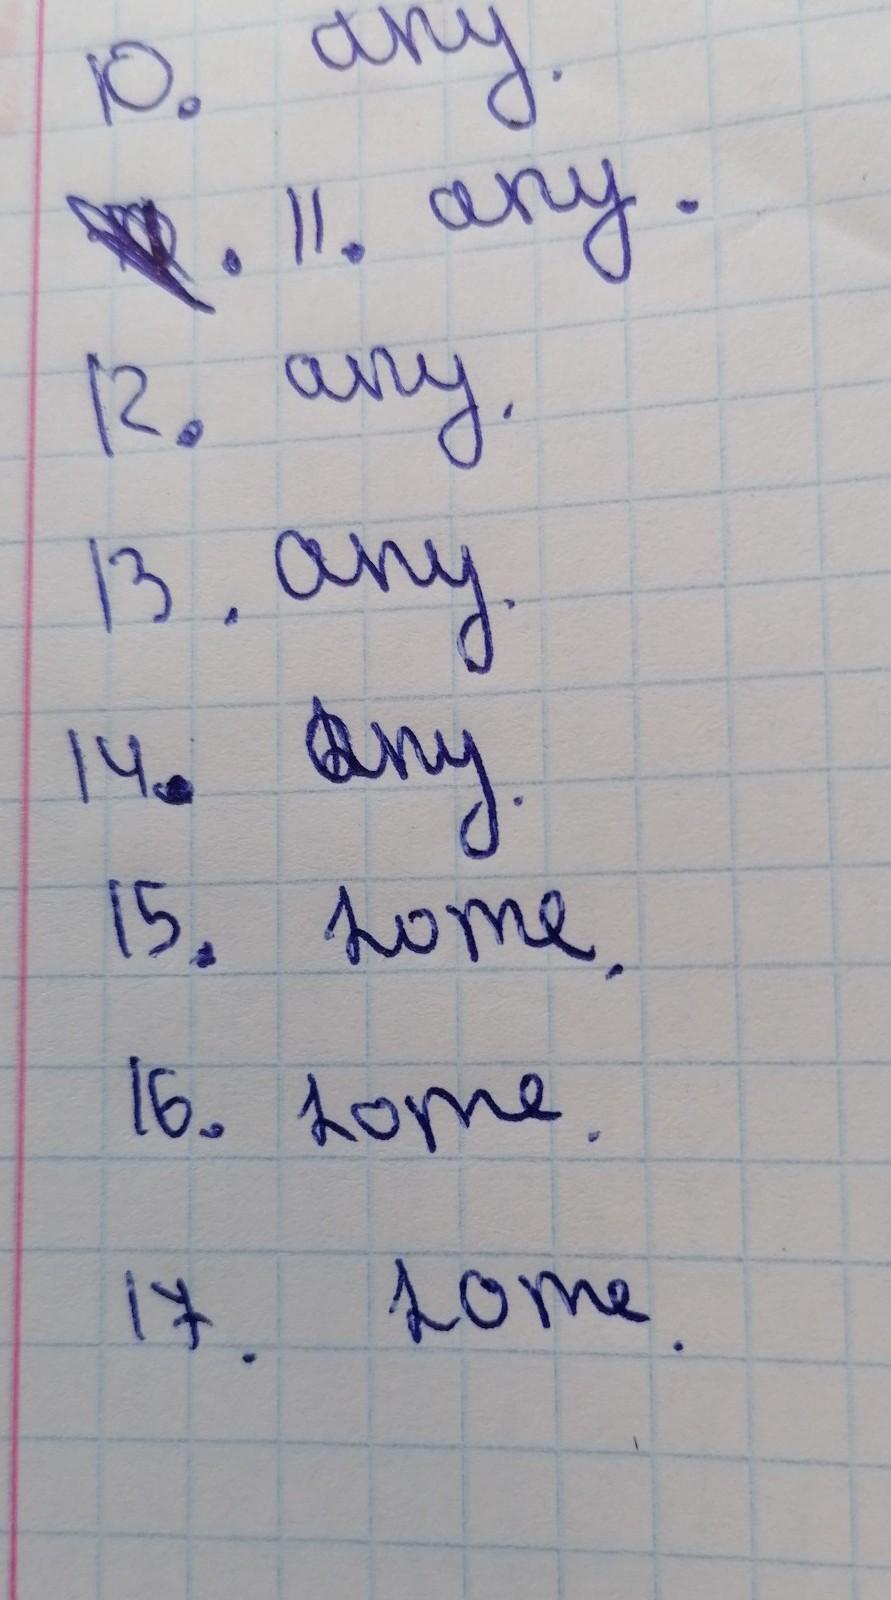 10. any.
. 11. any.
12. any.
13. any.
14. any.
15. some.
16. some.
17. some.